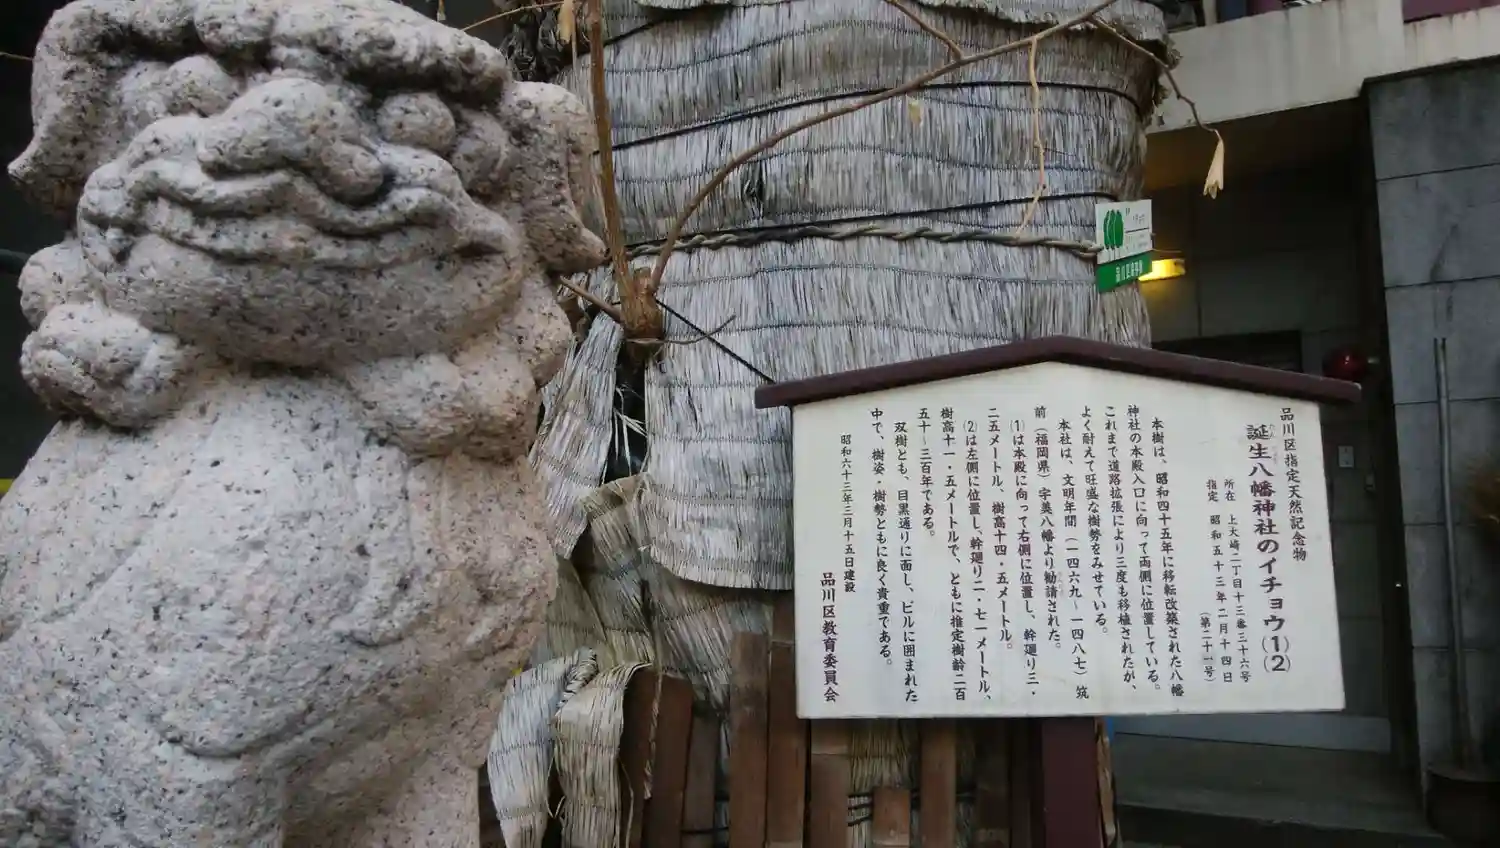 品川区指定天然記念物
誕生八幡神社のイチョウ(1)(2)
所在 上大崎二丁目十三番三十六号
指定 昭和五十三年二月十四日
(第二十一号)
本樹は、昭和四十五年に移転改築された八幡
神社の本殿入口に向って両側に位置している。
これまで道路拡張により三度も移植されたが、
よく耐えて旺盛な樹勢をみせている。
本社は、文明年間(一四六九~一四八七)筑
前(福岡県)宇美八幡より勧請された。
(1)は本殿に向って右側に位置し、幹廻り三・
二五メートル、樹高十四・五メートル。
(2)は左側に位置し、幹廻り二・七一メートル、
樹高十一・五メートルで、ともに推定樹齢二百
五十~三百年である。
双樹とも、目黒通りに面し、ビルに囲まれた
中で、樹姿・樹勢ともに良く貴重である。
昭和六十三年三月十五日建設
品川区教育委員会